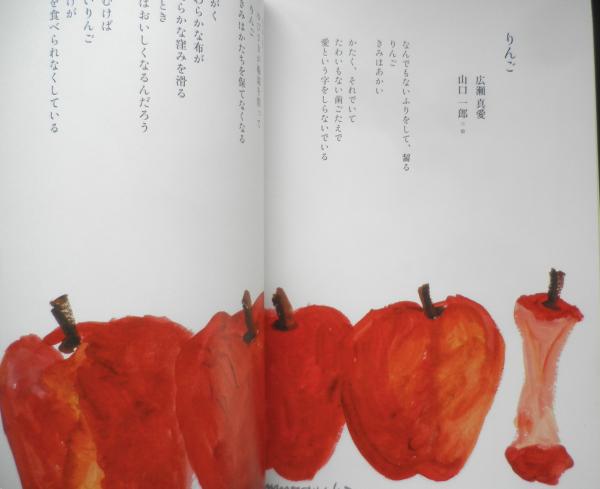 りんご
広瀬 真愛
山口 一郎＝絵
なんでもないふりをして、齧る
りんご
きみはあかい
かたく、それでいて
たわいもない歯ごたえで
愛という字をしらないでいる
きみはかたちを保てなくなる
がく
わらかな布が
らかな窪みを滑る
とき
はおいしくなるんだろう
むけば
いりんご
けが
を食べられなくしている